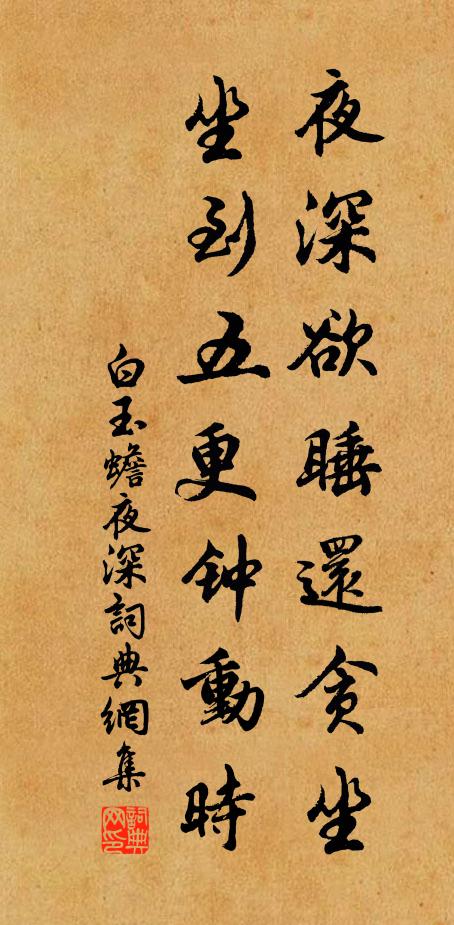 夜深欲睡還貪坐
坐到五更钟動時
白玉蟾夜深詞典網集
詞典网印